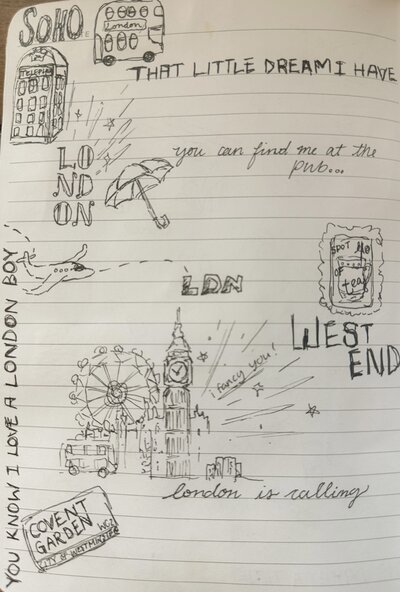 SOHO
London
TELEPHONE
THAT LITTLE DREAM I HAVE
LO
ND
ON
you can find me at the
pub...
SPOT
OF
tea
LDN
WEST
END
i fancy you!
london is calling
YOU KNOW I LOVE A LONDON BOY
COVENT
GARDEN WC2
CITY OF WESTMINSTER